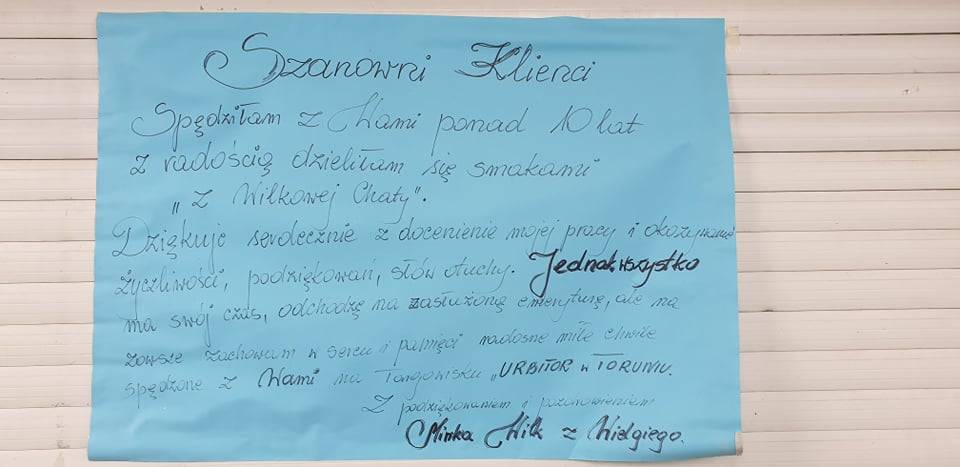 Szanowni Klienci
Spędziłam z Wami ponad 10 lat
z radością dzieliłam się smakami
"z Wilkowej Chaty".
Dziękuję serdecznie z docenienie mojej pracy i okazywanie
życzliwości, podziękowań, słów otuchy. Jednak wszystko
ma swój czas, odchodzę na zasłużoną emeryturę, ale na
zawsze zachowam w sercu i pamięci radosne miłe chwile
spędzone z Wami na Targowisku "URBITOR w TORUNIU.
Z podziękowaniem i pozdrowieniem
Mirka Wilk z Wielgiego.